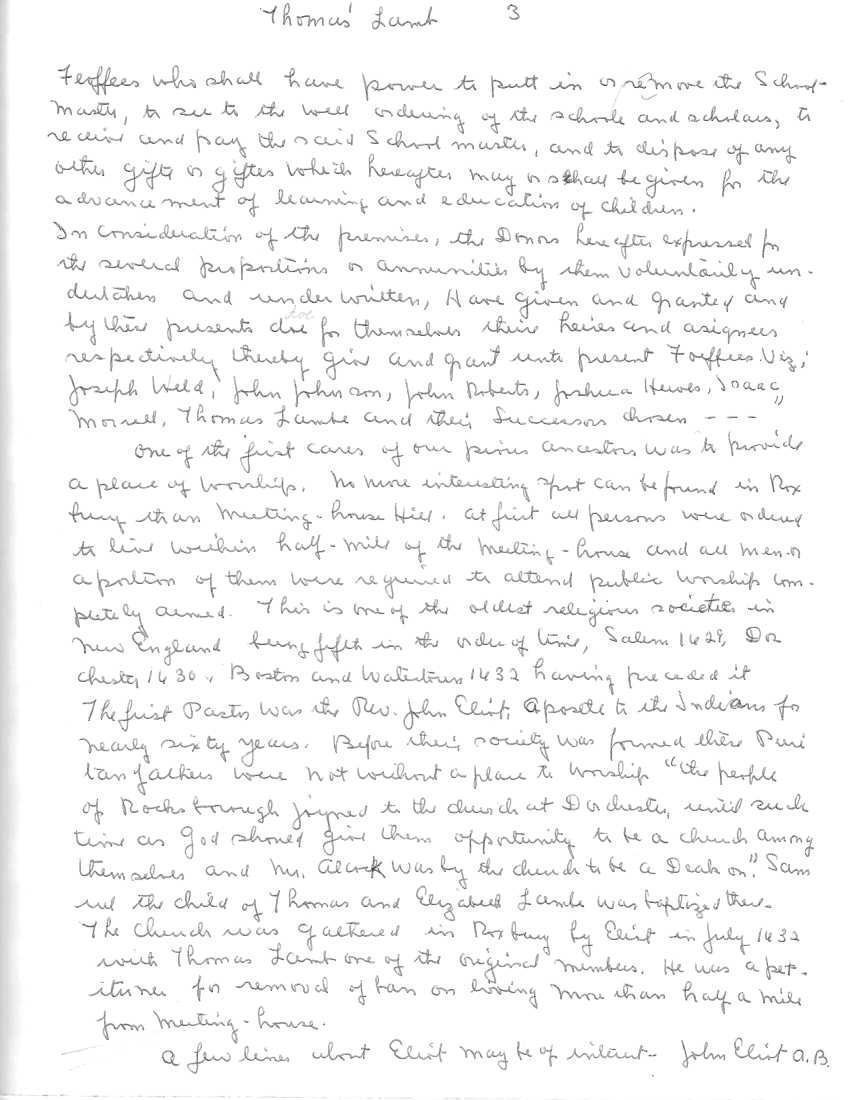 Thomas Lamb 3
Feoffees who shall have power to putt in or remove the School-
master, to see to the well ordering of the schoole and scholars, to
receive and pay the said School master, and to dispose of any
other gifte or giftes which hereafter may or shall be given for the
advancement of learning and education of children.
In consideration of the premises, the Donors hereafter expressed for
the several proportions or annunities by them voluntarily un-
dertaken and under written, Have given and granted and
by these presents doe for themselves their heires and asignees
respectively thereby give and grant unto present Foeffees. Viz;
Joseph Weld, John Johnson, John Roberts, Joshua Hewes, Isaac
Morrell, Thomas Lambe and their Successors chosen - - -
One of the first cares of our pious ancestors was to provide
a place of worship. No more interesting spot can be found in Rox
bury than Meeting-house Hill. At first all persons were ordered
to live within half-mile of the meeting-house and all men or
a portion of them were required to attend public worship com-
pletely armed. This is one of the oldest religious societies in
New England being fifth in the order of time, Salem 1629, Dor
chester 1630, Boston and Watertown 1632 having preceded it
The first Pastor was the Rev. John Eliot, Apostle to the Indians for
nearly sixty years. Before their society was formed these Puri
tan fathers were not without a place to worship "the people
of Rocksborough joyned to the church at Dorchester, until such
time as God should give them opportunity to be a church among
themselves and Mr. Alcock was by the church to be a Deakon". Sam
uel the child of Thomas and Elizabeth Lambe was baptized there.
The Church was gathered in Roxbury by Eliot in July 1632
with Thomas Lamb one of the original members. He was a pet-
itioner for removal of ban on living more than half a mile
from Meeting-house.
A few lines about Eliot may be of interest - John Eliot A.B.